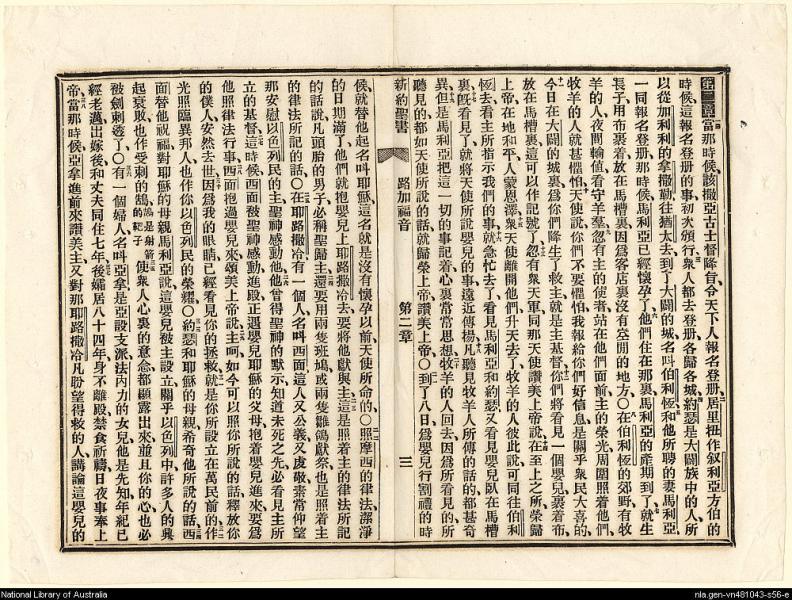 第二章當那時候、該撒亞古士督降旨、令天下人報名登册、居里扭作叙利亞方伯的
時候、這報名登册的事、初次頒行、衆人都去登册、各歸各城、約瑟是大闢族中的人、所
以從加利利的拿撒勒往猶太去、到了大闢的城、名叫伯利恆、和他所聘的妻馬利亞、
一同報名登册、那時候、馬利亞已經懷孕了、他們住在那裏、馬利亞的產期到了、就生
長子、用布裹着、放在馬槽裏、因爲客店裏沒有空閒的地方、○在伯利恆的郊野、有牧
羊的人、夜間輪值、看守羊羣、忽有主的使者、站在他們面前、主的榮光周圍照着他們、
牧羊的人就甚懼怕、天使說、你們不要懼怕、我報給你們好信息、是關乎衆民大喜的、
今日在大闢的城裏、爲你們降生了救主、就是主基督、你們將看見一個嬰兒裹着布、
放在馬槽裏、這可以作記號了、忽有衆天軍、同那天使讚美上帝說、在至上之所榮歸
上帝、在地和平、人蒙恩澤、衆天使離開他們升天去了、牧羊的人彼此說、可同往伯利
恆去、看主所指示我們的事、就急忙去了、看見馬利亞和約瑟、又看見嬰兒臥在馬槽
裏、旣看見了、就將天使所說嬰兒的事、遠近傳揚、凡聽見牧羊人所傳的話的、都甚奇
異、但是馬利亞把這一切的事、記着心裏常常思想、牧羊的人回去、因爲所看見的、所
聽見的、都如天使所說的話、就歸榮上帝、讚美上帝、○到了八日、爲嬰兒行割禮的時
新約聖書 路加福音 第二章 三
候、就替他起名叫耶穌、這名就是沒有懷孕以前、天使所命的、○照摩西的律法、潔淨
的日期滿了、他們就抱嬰兒上耶路撒冷去、要將他獻與主、這是照着主的律法所記
的話說、凡頭胎的男子、必稱聖歸主、還要用兩隻班鳩、或兩隻雛鴿獻祭、也是照着主
的律法所記的話、○在耶路撒冷有一個人、名叫西面、這人又公義又虔敬、素常仰望
那安慰以色列民的主、聖神感動他、他曾得聖神的默示、知道未死之先、必看見主所
立的基督、這時候西面被聖神感動進殿、正遇嬰兒耶穌的父母、抱着嬰兒進來、要爲
他照律法行事、西面抱過嬰兒來、頌美上帝說、主呵、如今可以照你所說的話、釋放你
的僕人、安然去世、因爲我的眼睛已經看見你的拯救、就是你所設立在萬民前的、作
光照臨異邦人、也作你以色列民的榮耀、○約瑟和耶穌的母親、希奇他所說的話、西
面替他祝福、對耶穌的母親馬利亞說、這嬰兒被主設立、關乎以色列中許多人的興
起衰敗、也作受刺的鵠鵠是射箭的靶子使衆人心裏的意念都顯露出來、並且你的心也必
被劍刺透了、○有一個婦人名叫亞拿、是亞設支派法內力的女兒、他是先知、年紀已
經老邁、出嫁後、和丈夫同住七年、後孀居八十四年、身不離殿、禁食祈禱、日夜事奉上
帝、當那時候、亞拿進前來讚美主、又對那耶路撒冷凡盼望得救的人、講論這嬰兒的
National Library of Australia
nla.gen-vn481043-s56-e